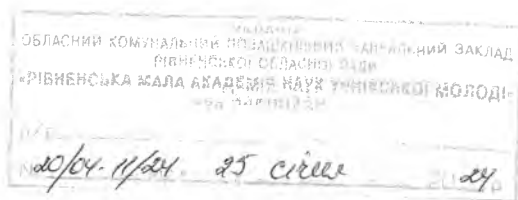 УКРАЇНА
ОБЛАСНИЙ КОМУНАЛЬНИЙ ПОЗАШКІЛЬНИЙ НАВЧАЛЬНИЙ ЗАКЛАД
РІВНЕНСЬКОЇ ОБЛАСНОЇ РАДИ
«РІВНЕНСЬКА МАЛА АКАДЕМІЯ НАУК УЧНІВСЬКОЇ МОЛОДІ»
20/04-11/24 25 січня 24